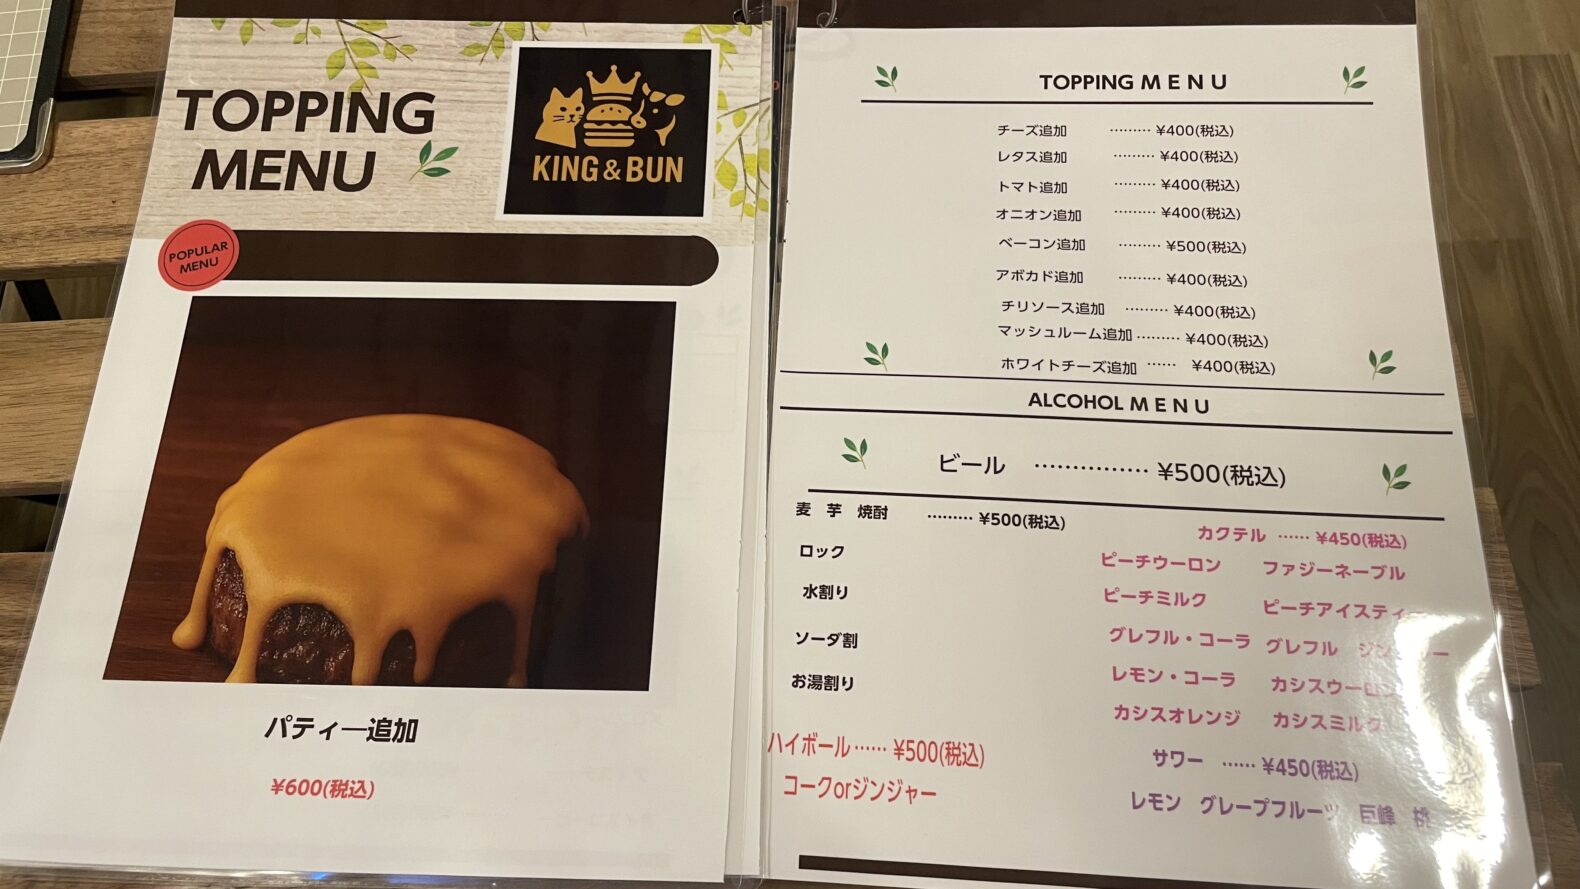 TOPPING
MENU
KING & BUN
POPULAR
MENU
パティー追加
¥600(税込)
TOPPING M E N U
チーズ追加 ……… ¥400(税込)
レタス追加 ……… ¥400(税込)
トマト追加 ……… ¥400(税込)
オニオン追加 ……… ¥400(税込)
ベーコン追加 ……… ¥500(税込)
アボカド追加 ……… ¥400(税込)
チリソース追加 ……… ¥400(税込)
マッシュルーム追加 ……… ¥400(税込)
ホワイトチーズ追加 …… ¥400(税込)
ALCOHOL M E N U
ビール …………… ¥500(税込)
麦 芋 焼酎 ……… ¥500(税込)
ロック
水割り
ソーダ割
お湯割り
ハイボール …… ¥500(税込)
コークorジンジャー
カクテル …… ¥450(税込)
ピーチウーロン ファジーネーブル
ピーチミルク ピーチアイスティ
グレフル・コーラ グレフル
レモン・コーラ カシスウーロン
カシスオレンジ カシスミルク
サワー …… ¥450(税込)
レモン グレープフルーツ 巨峰 桃